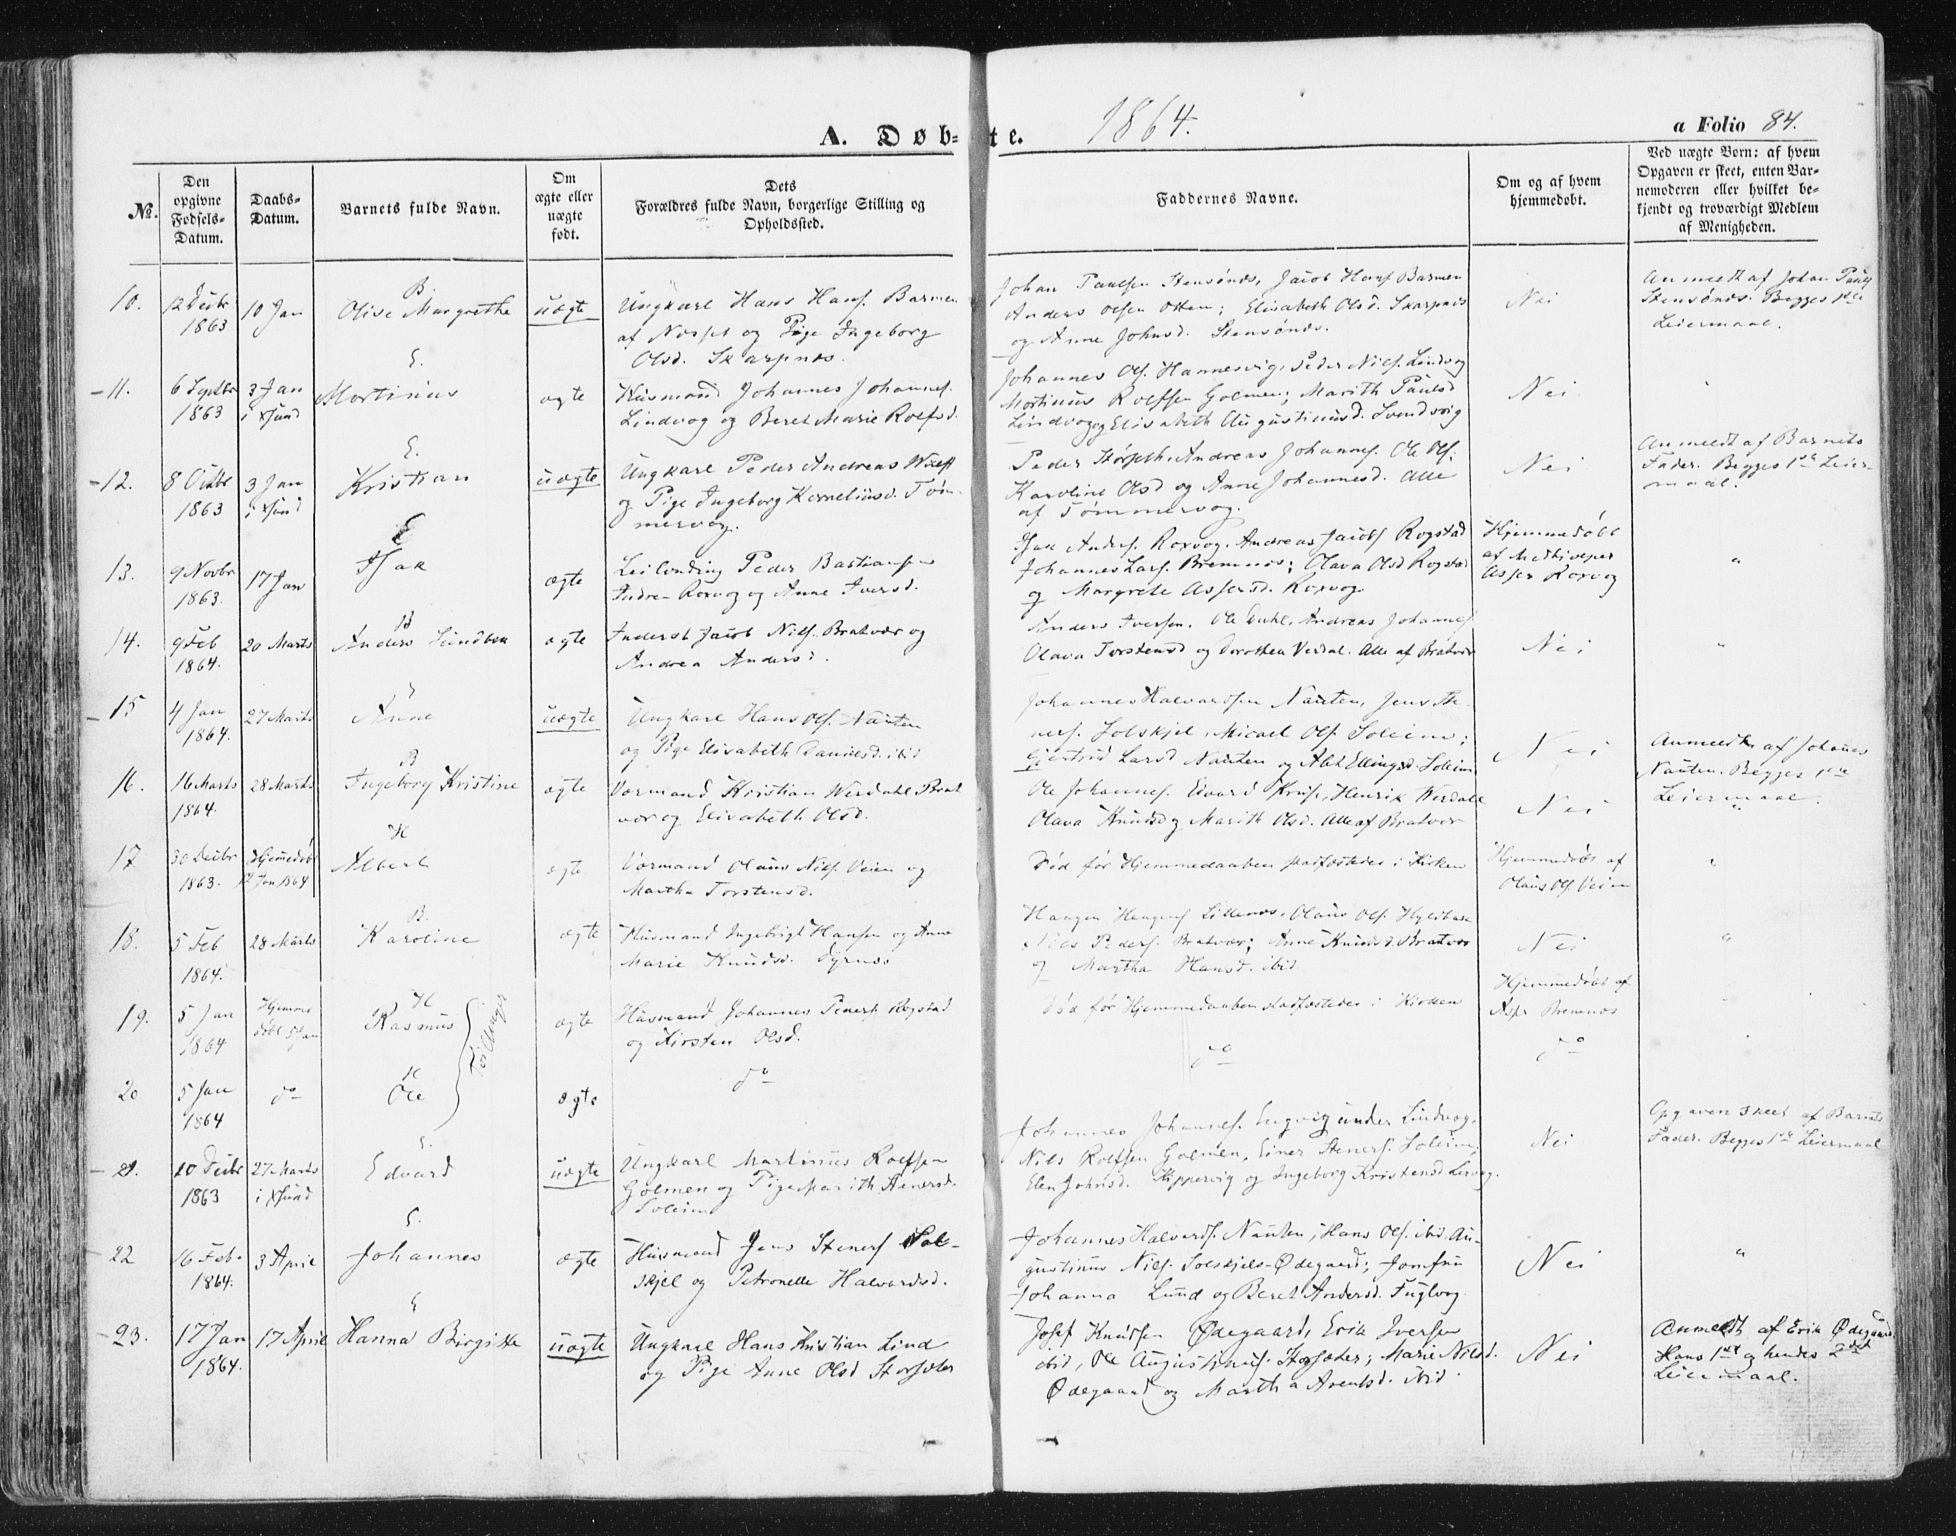 A. Døb= te.
1864.
a Folio 84.
No.
Den opgivne Fødsels-Datum.
Daabs-Datum.
Barnets fulde Navn.
Om ægte eller uægte født.
Dets Forældres fulde Navn, borgerlige Stilling og Opholdssted.
Faddernes Navne.
Om og af hvem hjemmedøbt.
Ved uægte Børn: af hvem Opgaven er skeet, enten Barnemoderen eller hvilket bekjendt og troværdigt Medlem af Menigheden.
10. 12 Decbr 1863 10 Jan
B.
Olise Margrethe
uægte
Ungkarl Hans Hansf. Barmen
af Nesset og Pige Ingeborg
Olsd. Skarpnes.
Johan Paulsen Stensønes, Jacob Hansf Barmen
Anders Olsen Otten; Elisabeth Olsd. Skarpnes
og Anne Johnsd. Stensønes.
Nei
Anmeldt af Johan Paulsf
Stensønes. Begges 1ste
Leiermaal.
11. 6 Septbr 1863 3 Jan i Xsund
E.
Martinus
ægte
Husmand Johannes Johannesf.
Lindvog og Beret Marie Rolfsd.
Johannes Olf. Hannesvig, Peder Nilsf. Lindvog
Martinus Rolfsen Golmen; Marith Paulsd
Lindvog og Elisabeth Augustinusd. Svendsvig
Nei
12. 8 Octbr 1863 3 Jan i Xsund
E.
Kristian
uægte
Ungkarl Peder Andreas
og Pige Ingeborg Korneliusd. Tøm-
mervog.
Peder Andreas Johannesf. Ole Olf.
Karoline Olsd og Anne Johannesd. Alle
af Tømmervog.
Nei
Anmeldt af Barnets
Fader. Begges 1ste Leier-
maal.
13. 9 Novbr 1863. 17 Jan
E
Isak
ægte
Leilending Peder Bastiansen
Indre-Roxvog og Anne Iversd.
Isak Andersf. Roxvog. Andreas Jacobsf Rogstad
Johannes Larsf. Bremnes; Olava Olsd Rogstad
og Margrete Assersd. Roxvog.
Hjemmedøbt
af Medhjælper
Asser Roxvog
"
14. 9 Feb 1864. 20 Marts
B
Anders
ægte
Inderst Jacob Nilsf. Bratvær og
Andrea Andersd.
Anders Iversen. Ole Dahl, Andreas Johannesf
Olava Torstensd og Dorothea Verdal. Alle af Bratvær
Nei
"
15 4 Jan 1864. 27 Marts
E
Anne
uægte
Ungkarl Hans Olf. Nauten
og Pige Elisabeth Danielsd. ibid
Johannes Halvardsen Nauten, Jens Ste-
nersf. Solskjel, Micael Olf. Soleim;
Gjertrud Larsd Nauten og Abel Ellingsd. Soleim
Nei
Anmeldt af Johannes
Nauten. Begges 1ste
Leiermaal.
16. 16 Marts 1864. 28 Marts
B
Ingeborg Kristine
ægte
Vormand Kristian Werdahl Brat-
vær og Elisabeth Olsd.
Ole Johannesf. Edvard Henrik Werdahl
Olava Knudsd og Marith Olsd. Alle af Bratvær
Nei
"
17 30 Decbr 1863. Hjemmedøbt 12 Jan 1864
H
Albert
ægte
Vormand Olaus Nilsf. Veien og
Martha Torstensd.
Død før Hjemmedaaben stadfæstedes i Kirken
Hjemmedøbt af
Olaus Olf. Veien
"
18. 5 Feb 1864. 28 Marts
B.
Karoline
ægte
Husmand Ingebrigt Hansen og Anne
Marie Knudsd. Dyrnes
Haagen Haagensf Lillenes, Olaus Olf.
Nils Pedersf. Bratvær; Anne Knudsd. Bratvær
og Martha Hansd. ibid.
Nei
"
19. 5 Jan 1864 Hjemmedøbt 5 Jan
H
Rasmus
Tvillinger
ægte
Husmand Johannes Pedersf. Rogstad
og Kirsten Olsd.
Død før Hjemmedaaben stadfæstedes i Kirken
Hjemmedøbt af
Bremnes
20 5 Jan 1864 do
H
Ole
ægte
do
do
do
21. 10 Decbr 1863 27 Marts i Xsund
E.
Edvard
uægte
Ungkarl Martinus Rolfsen
Golmen og Pige Marith Stenersd.
Soleim
Johannes Johannesf. Engvig under Lindvog.
Nils Rolfsen Golmen, Einer Stenersf. Soleim,
Elen Johnsd. Kippervig og Ingeborg Kristensd Lervog.
Nei
Opgaven skeet af Barnets
Fader. Begges 1ste Leiermaal
22 16 Feb. 1864. 3 April
E.
Johannes
ægte
Husmand Jens Stenersf Sol-
skjel og Petronelle Halvardsd.
Johannes Halvardsf. Nauten, Hans Olf. ibid, Au-
gustinus Nilsf. Solskjels-Ødegaard; Jomfru
Johanna Lund og Beret Andersd. Fuglvog
Nei
"
23. 17 Jan 1864. 17 April
E
Hanna Birgitte
uægte
Ungkarl Hans Kristian Lind
og Pige Anne Olsd Storsæter
Josef Knudsen Ødegaard, Erik Iversen
ibid, Ole Augustinusf. Storsæter; Marie Nilsd.
Ødegaard og Martha Arentsd. ibid.
Nei
Anmeldt af Erik Ødegaard
Hans 1ste og hendes 2det
Leiermaal.